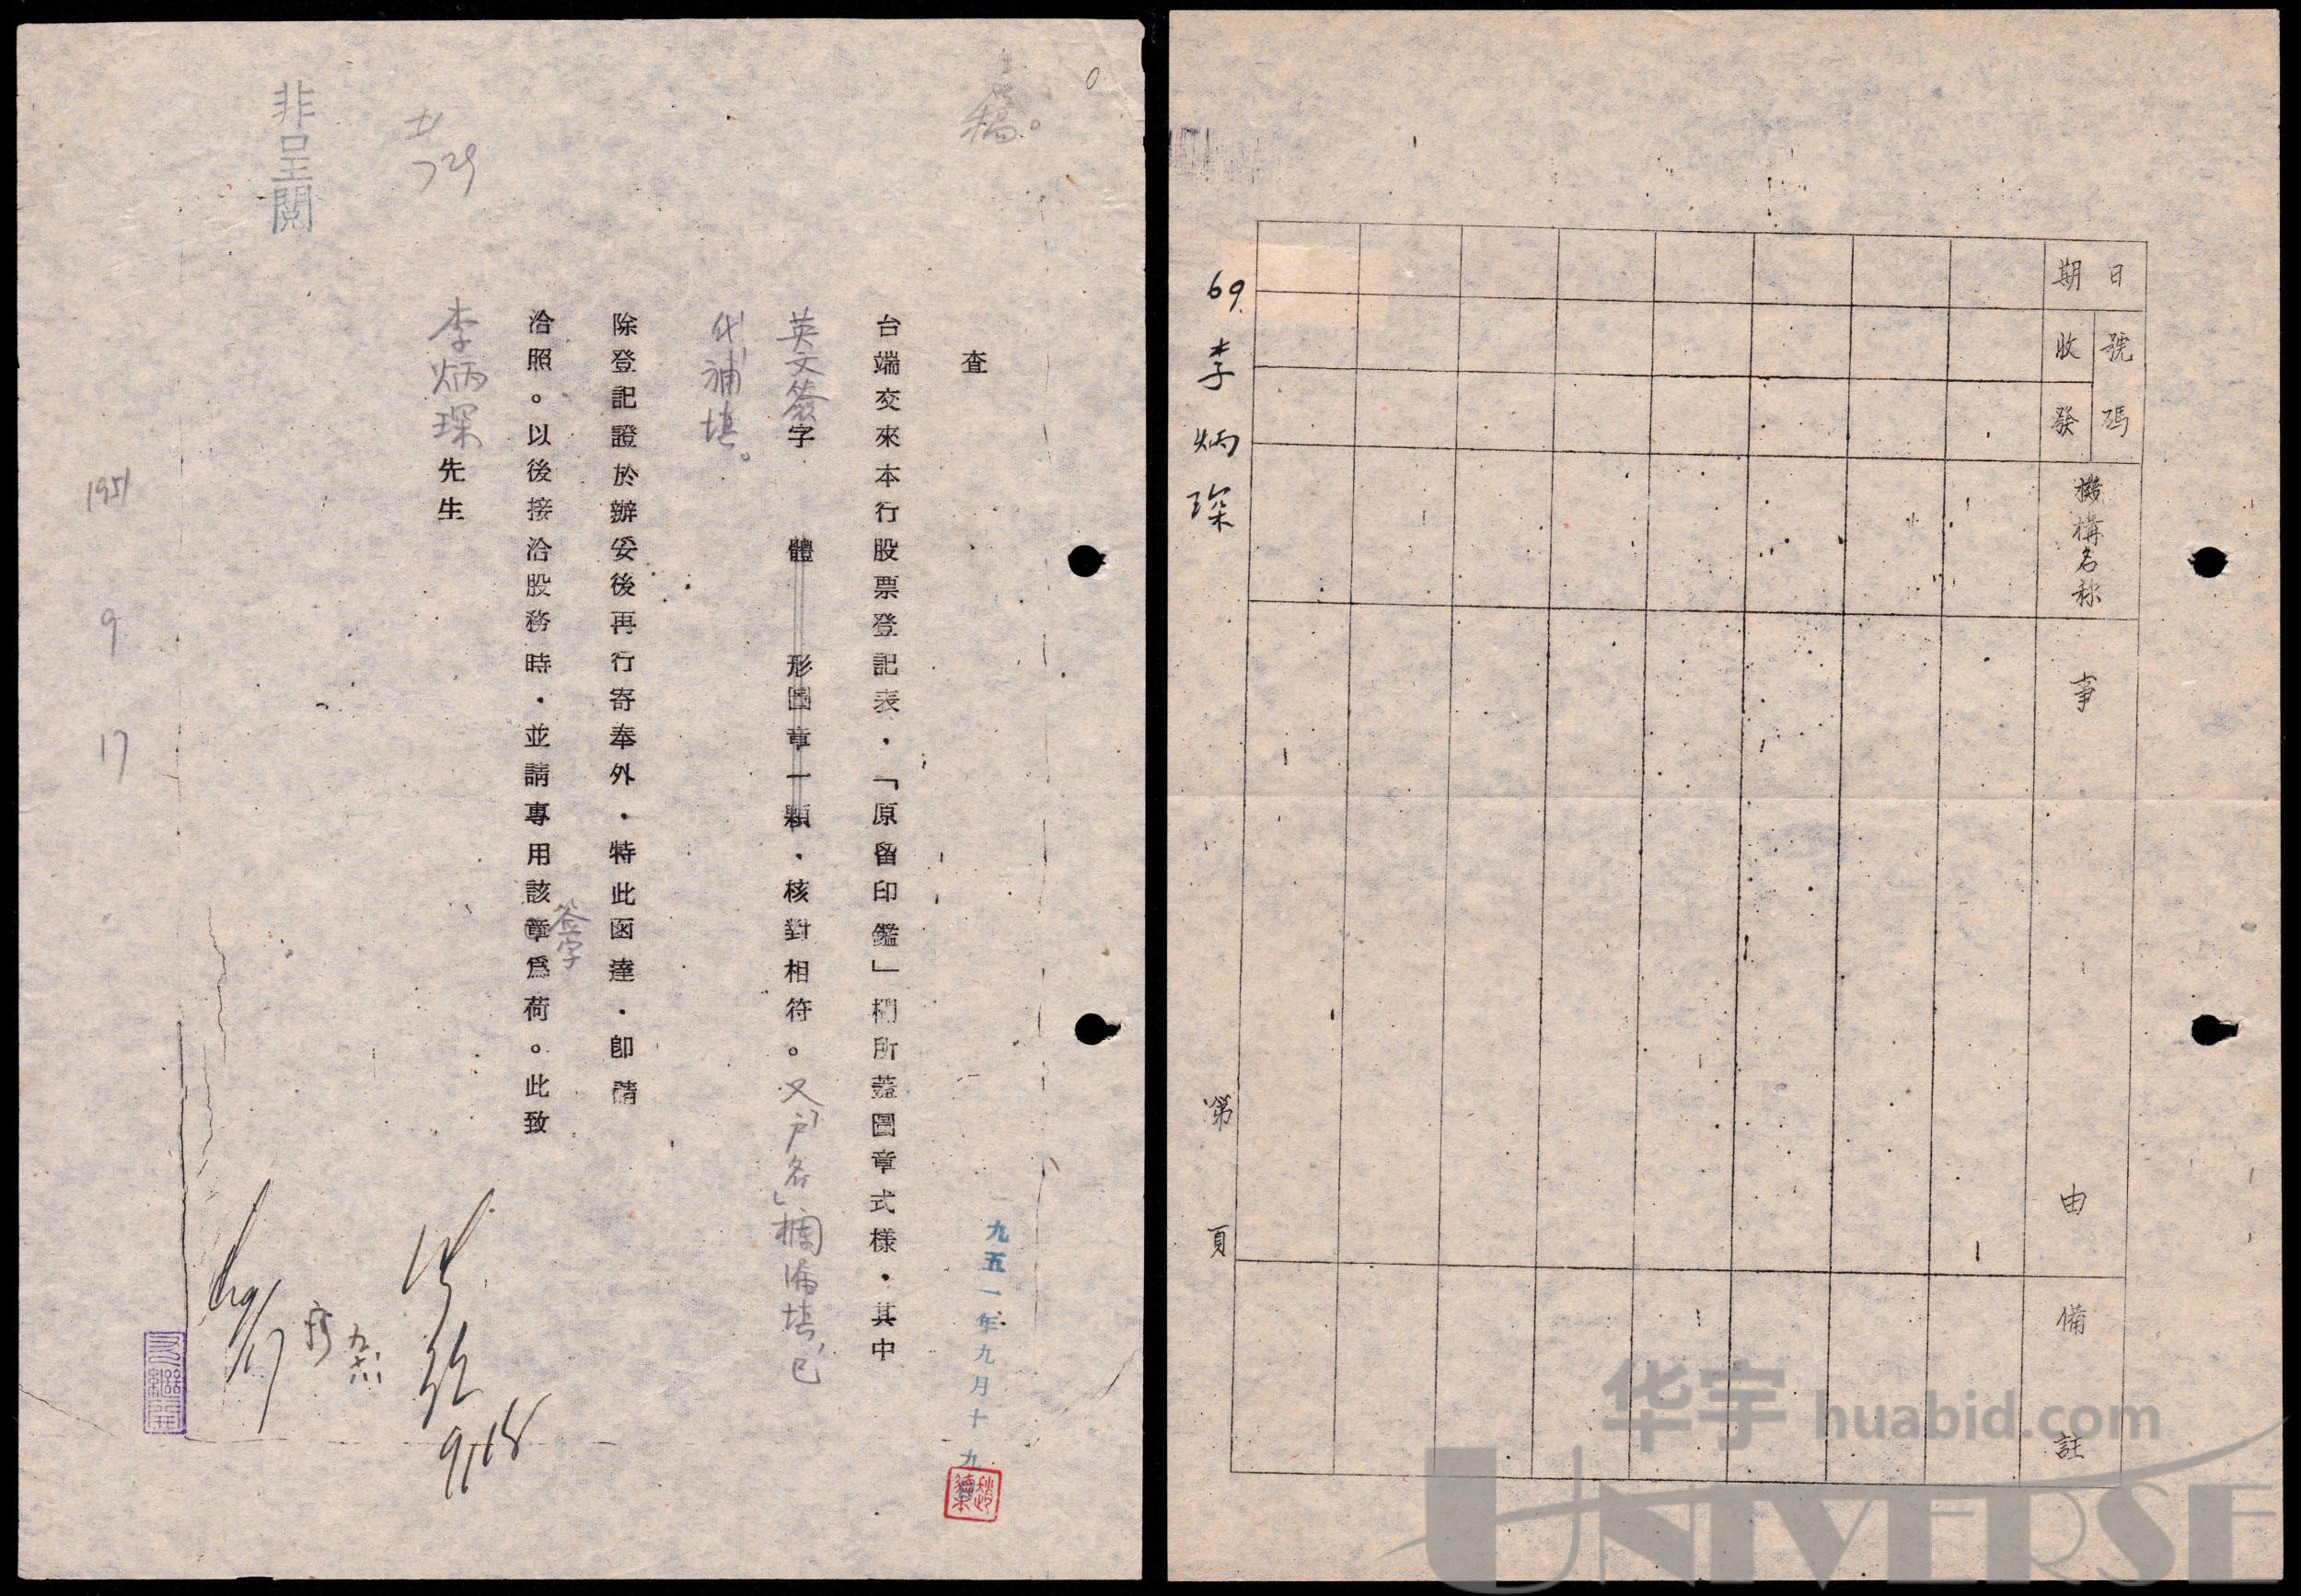 稿。
查
台端交來本行股票登記表·「原留印鑑」欄所蓋圖章式樣·其中
英文簽字 體 形圖章一顆·核對相符。又「戶名」欄漏填,已
代補填。
除登記證於辦妥後再行寄奉外·特此函達·卽請
洽照。以後接洽股務時·並請專用該章爲荷。此致
簽字
李炳琛先生
729
非呈閱
1951
9
17
九五一年九月十九
9/18
日期
號碼
收
發
機構名称
事由
備註
69.李炳琛
第 頁
华宇 huabid.com
UNIVERSE